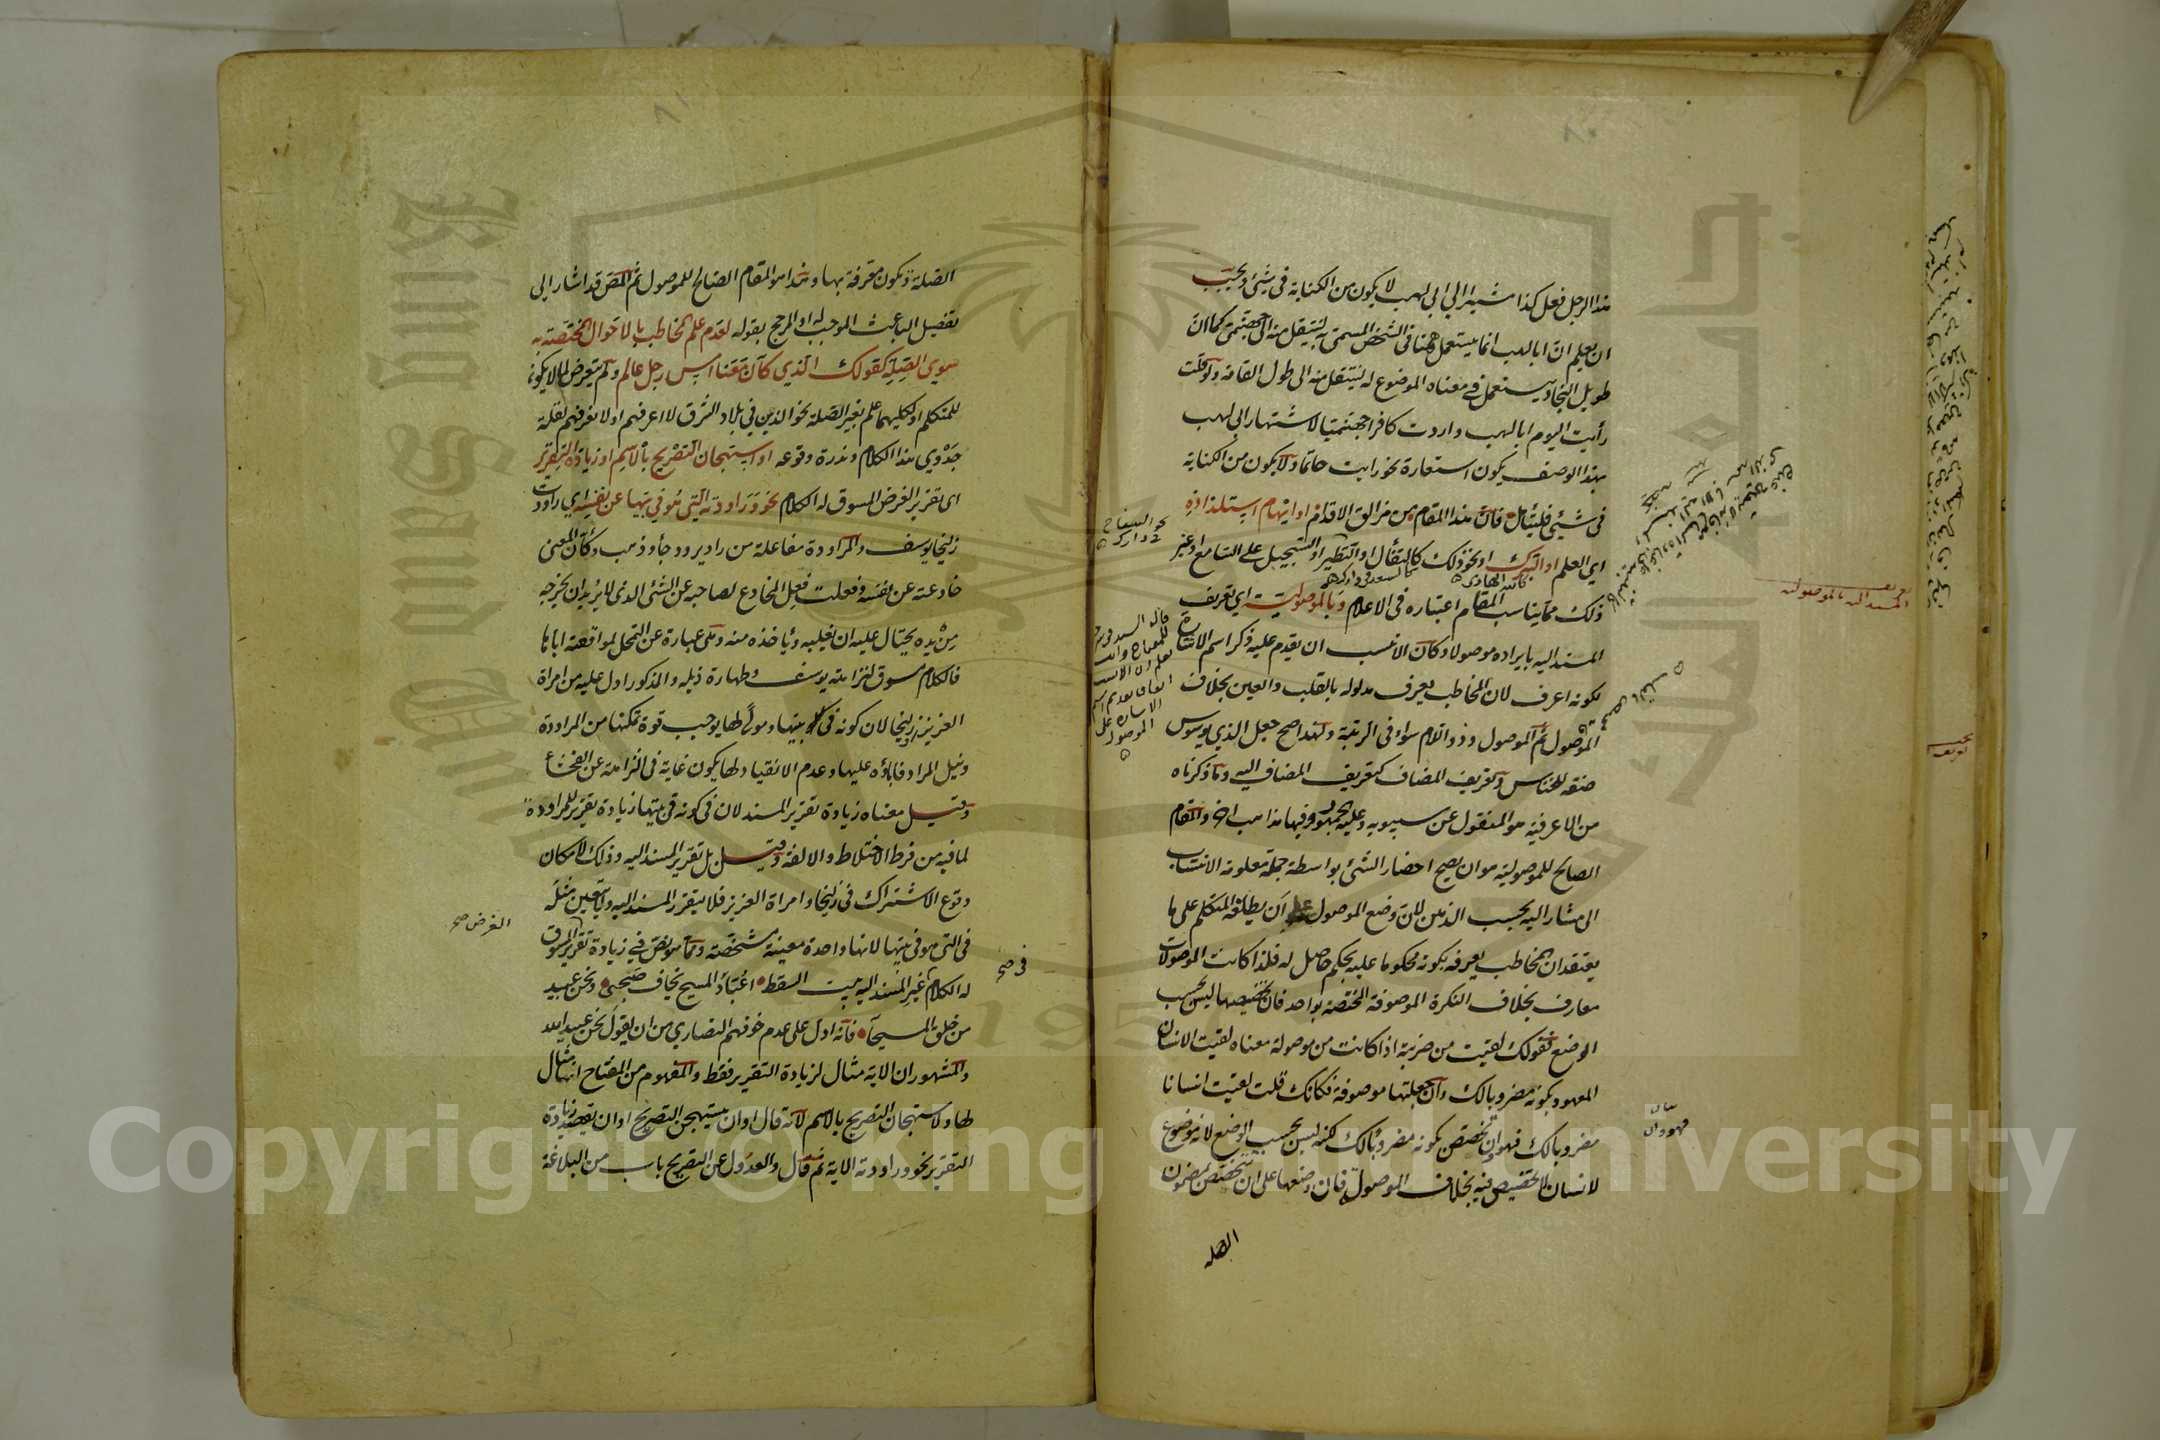 هذا الرجل فعل كذا مشيرا الى ابي لهب لا يكون من الكناية في شيئ ويجب
ان يعلم ان ابا لهب انما يستعمل ههنا في الشخص المسمى به لينتقل منه الى جهنمى كما ان
طويل النجاد يستعمل في معناه الموضوع له لينتقل منه الى طول القامة ولو قلت
رأيت اليوم ابا لهب واردت كافرا جهنميا لاشتهار ابي لهب
بهذا الوصف يكون استعارة نحو رايت حاتما ولا يكون من الكناية
في شيئ فليتأمل فان هذا المقام من مزالق الاقدام او ايهام استلذاذه
اي العلم او التبرك او نحو ذلك كالتفأل او التطير او التسجيل على السامع او غير
ذلك مما يناسب المقام اعتباره في الاعلام وبالموصولية اي تعريف
المسند اليه بايراده موصولا وكان الانسب ان يقدم عليه ذكر اسم الاشارة
لكونه اعرف لان المخاطب يعرف مدلوله بالقلب والعين بخلاف
الموصول ثم الموصول وذو اللام سواء في الرتبة ولهذا صح جعل الذي يوسوس
صفة للخناس وتعريف المضاف كتعريف المضاف اليه وما ذكرناه
من الاعرفية هو المنقول عن سيبويه وعليه الجمهور وفيها مذاهب اخر والمقام
الصالح للموصولية هو ان يصح احضار الشئ بواسطة جملة معلومة الانتساب
الى مشار اليه بحسب الذهن لان وضع الموصول على ان يطلقه المتكلم على ما
يعتقد ان المخاطب يعرفه بكونه محكوما عليه بحكم حاصل له فلذا كانت الموصولات
معارف بخلاف النكرة الموصوفة المختصة بواحد فان تخصيصها ليس بحسب
الوضع فقولك لقيت من ضربته اذا كانت من موصولة معناه لقيت الانسان
المعهود بكونه مضروبا لك وان جعلتها موصوفة فكانك قلت لقيت انسانا
مضروبا لك فهو وان تخصص بكونه مضروبا لك لكنه ليس بحسب الوضع لانه موضوع
لانسان لا تخصيص فيه بخلاف الموصول فان وضعها على ان تتخصص بمضمون
الصلة
تعريف المسند اليه بالموصولية
الصلة وتكون معرفة بها وهذا هو المقام الصالح للموصول ثم المص قد اشار الى
تفصيل الباعث الموجب له او المرجح بقوله لعدم علم المخاطب بالاحوال المختصة به
سوى الصلة كقولك الذي كان معنا امس رجل عالم ولم يتعرض لما لا يكون
للمتكلم او لكليهما علم بغير الصلة نحو الذين في بلاد الشرق لا اعرفهم او لا نعرفهم لقلة
جدوى هذا الكلام وندرة وقوعه او استهجان التصريح بالاسم او زيادة التقرير
اى تقرير الغرض المسوق له الكلام نحو وراودته التي هو في بيتها عن نفسه اي راودت
زليخا يوسف والمراودة مفاعلة من راد يرود جاء وذهب وكان المعنى
خادعته عن نفسه وفعلت فعل المخادع لصاحبه عن الشئ الذي لا يريد ان يخرجه
من يده يحتال عليه ان يغلبه ويأخذه منه وهي عبارة عن التمحل لمواقعته اياها
فالكلام مسوق لنزاهة يوسف وطهارة ذيله والمذكور ادل عليه من امراة
العزيز او زليخا لان كونه في بيتها ومولى لها يوجب قوة تمكنها من المراودة
ونيل المراد فاباؤه عليها وعدم الانقياد لها يكون غاية في النزاهة عن الفحشاء
وقيل معناه زيادة تقرير المسند لان في كونه في بيتها زيادة تقرير للمراودة
لما فيه من فرط الاختلاط والالفة وقيل بل تقرير المسند اليه وذلك لامكان
وقوع الاشتراك في زليخا وامراة العزيز فلا يتقرر المسند اليه ولا يتعين مثله
في التي هو في بيتها لانها واحدة معينة مشخصة ومما هو نص في زيادة تقرير المسوق
له الكلام غير المسند اليه بيت السقط اعباد المسيح يخاف صحبي ونحن عبيد
من خلق المسيحا فانه ادل على عدم خوفهم النصارى من ان يقول نحن عبيد الله
والمشهور ان الاية مثال لزيادة التقرير فقط والمفهوم من المفتاح انها مثال
لها ولاستهجان التصريح بالاسم لانه قال او ان يستهجن التصريح او ان يقصد زيادة
التقرير نحو وراودته الاية ثم قال والعدول عن التصريح باب من البلاغة
الغرض صح
في صح
Copyright © King Saud University